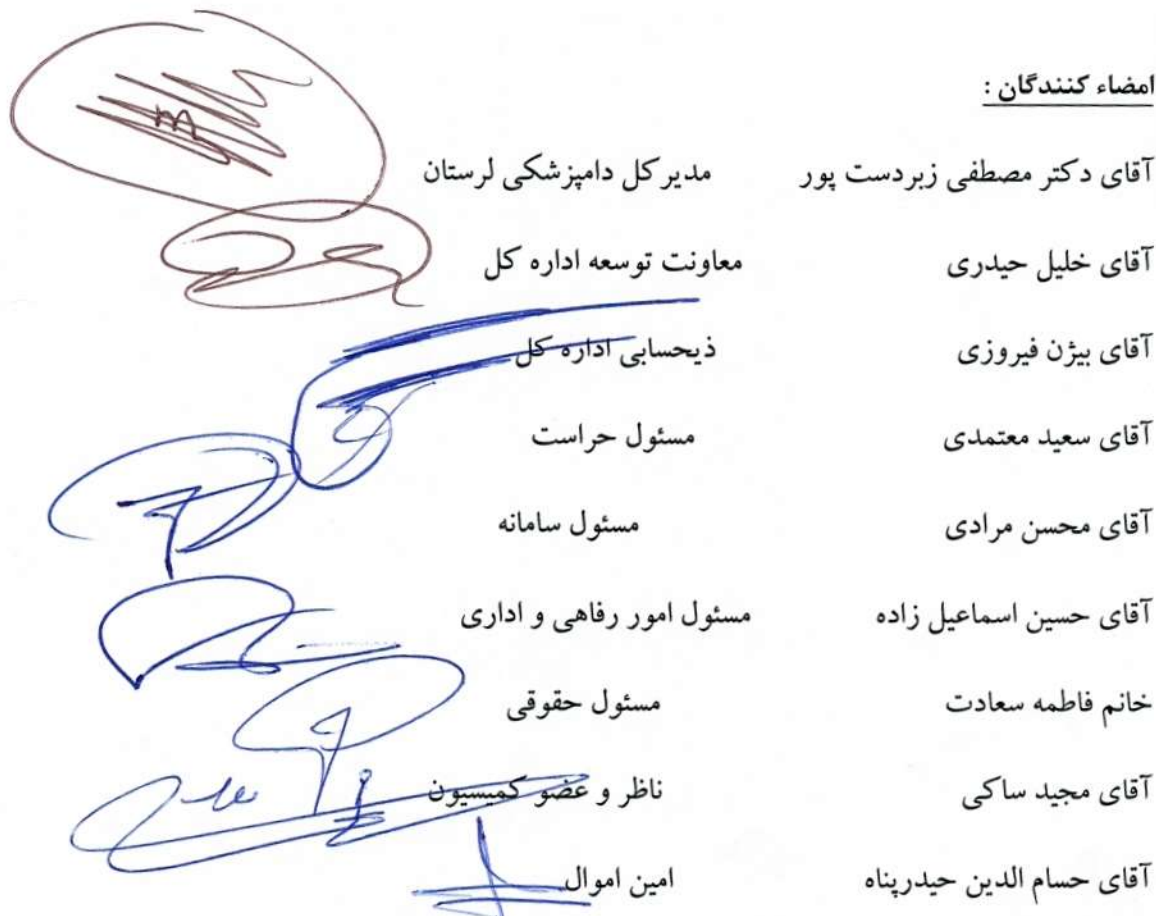 امضاء کنندگان :
آقای دکتر مصطفی زبردست پور مدیرکل دامپزشکی لرستان
آقای خلیل حیدری معاونت توسعه اداره کل
آقای بیژن فیروزی ذیحسابی اداره کل
آقای سعید معتمدی مسئول حراست
آقای محسن مرادی مسئول سامانه
آقای حسین اسماعیل زاده مسئول امور رفاهی و اداری
خانم فاطمه سعادت مسئول حقوقی
آقای مجید ساکی ناظر و عضو کمیسیون
آقای حسام الدین حیدرپناه امین اموال